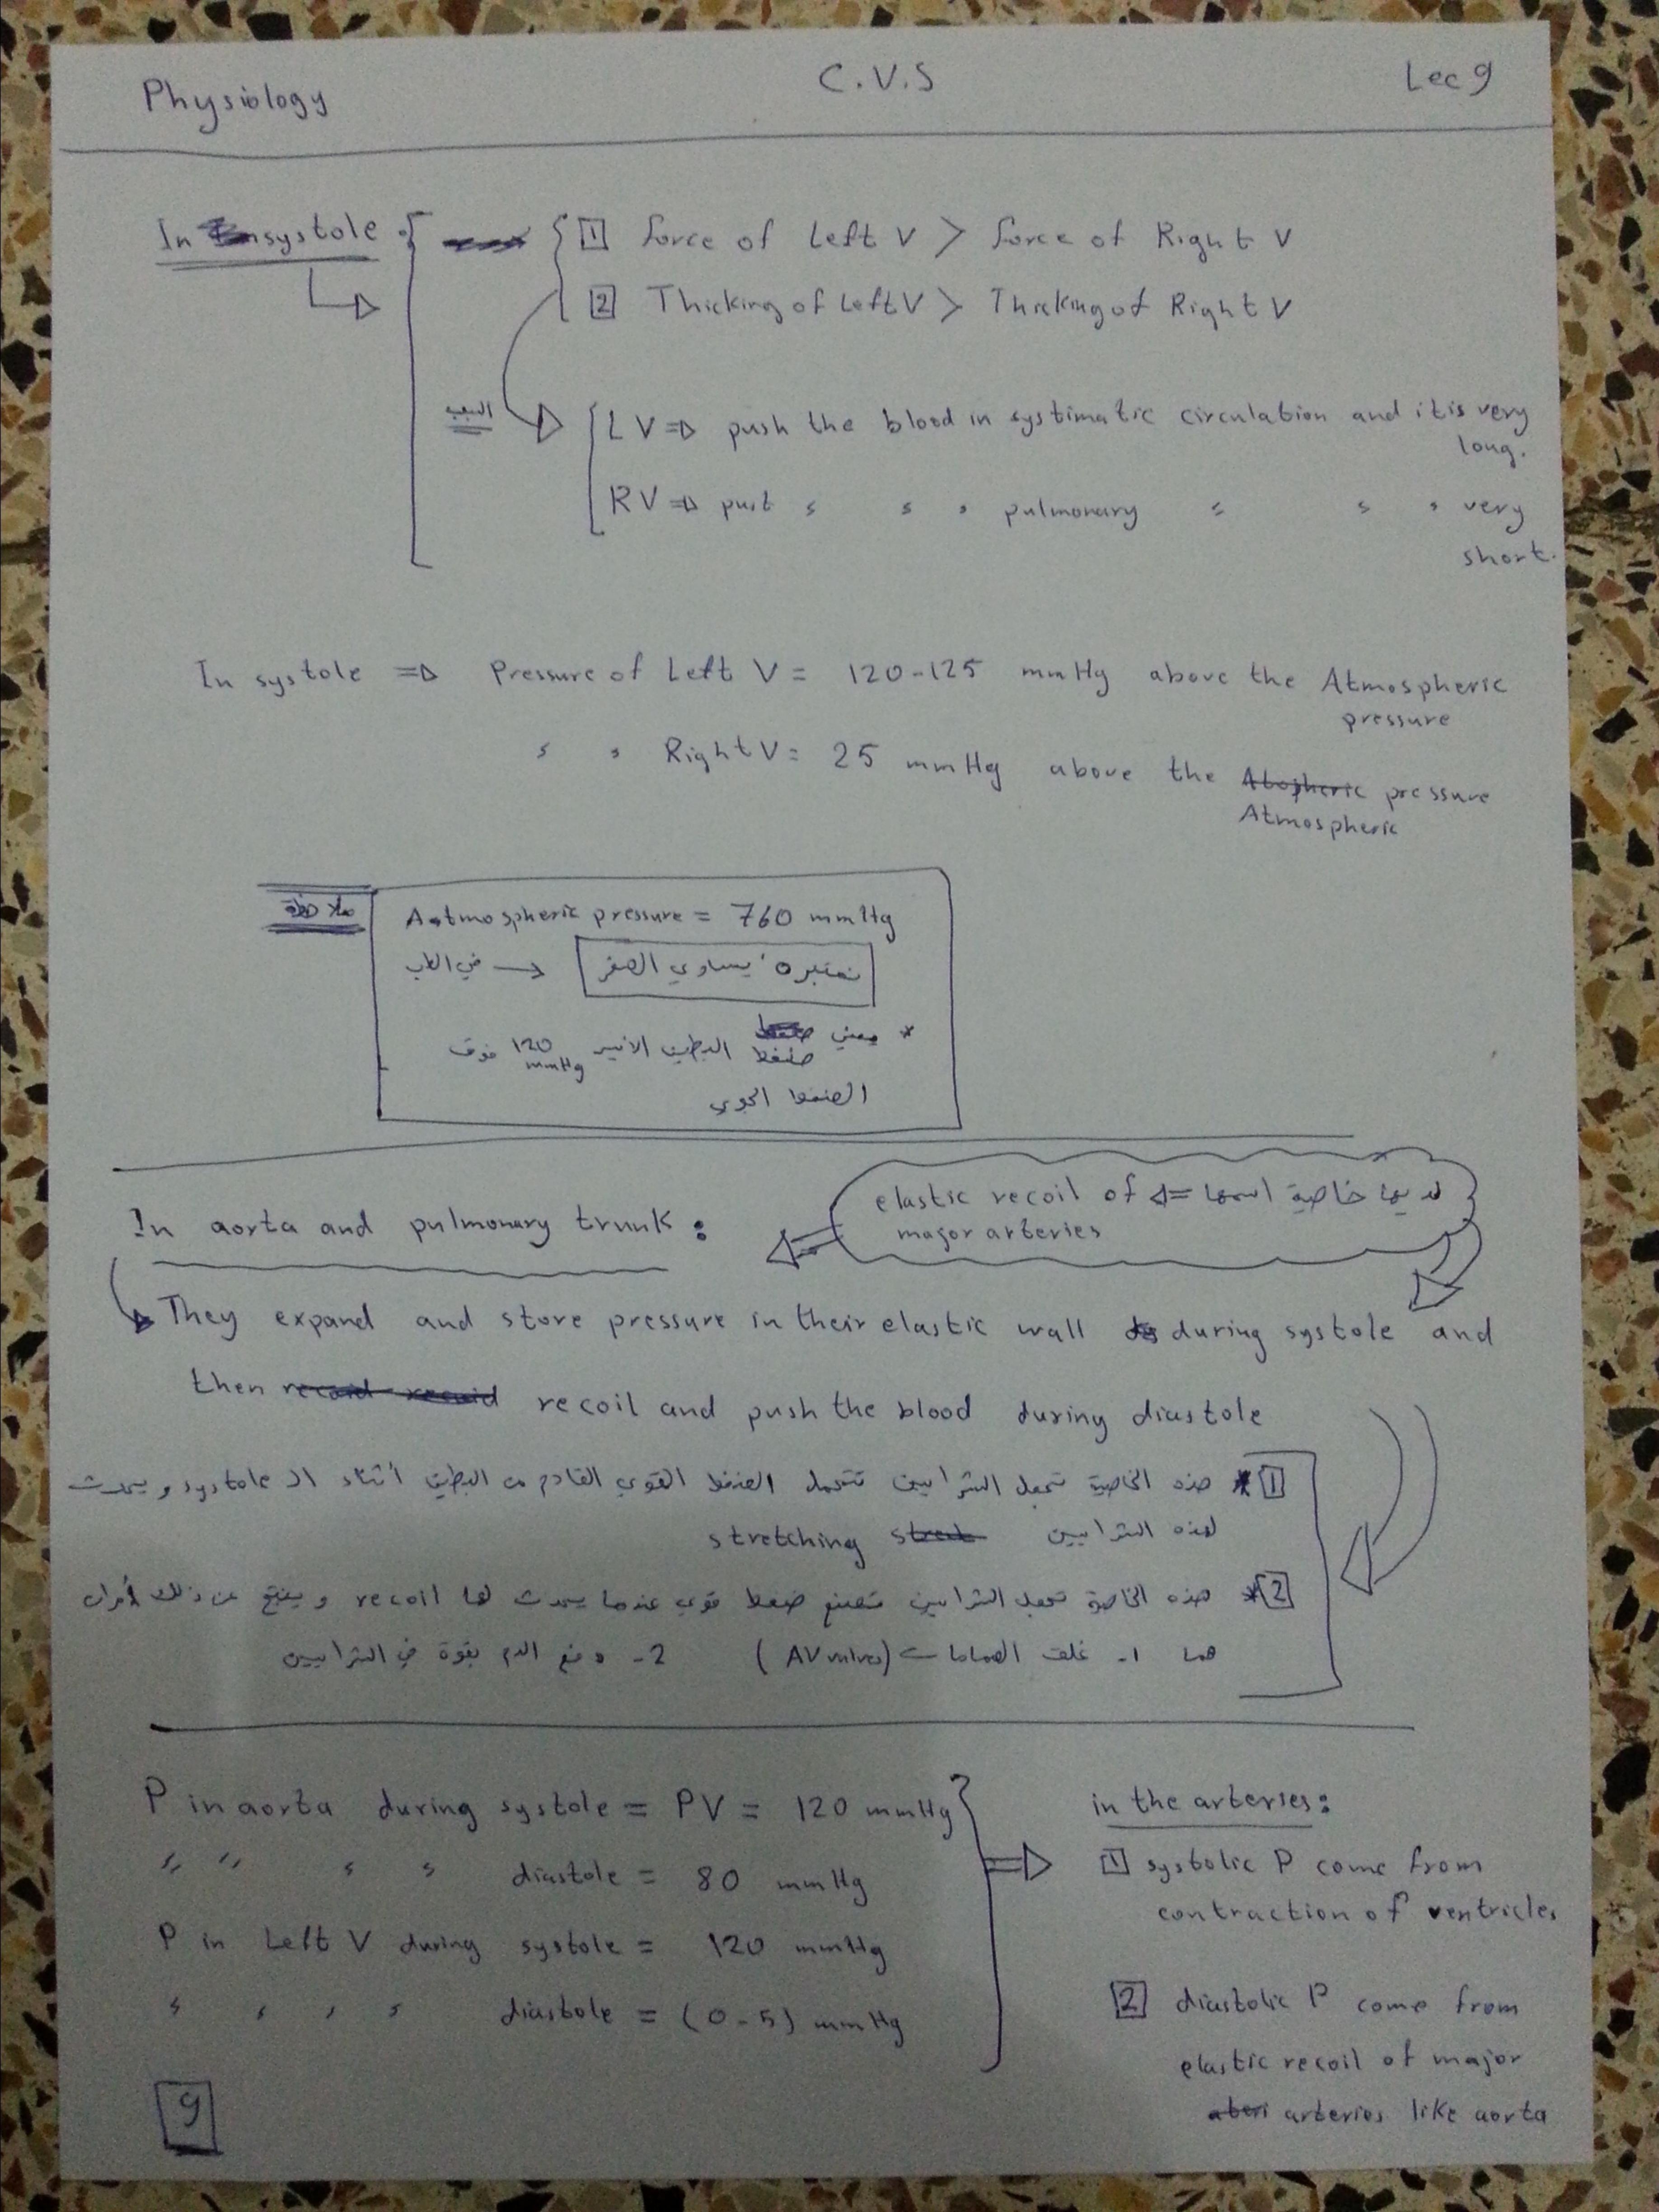 Physiology C.V.S Lec 9
In systole : 1 force of Left V > force of Right V
2 Thicking of Left V > Thicking of Right V
السبب LV ⇒ push the blood in systimatic circulation and it is very
long.
RV ⇒ pust " " " pulmonary " " " very
short.
In systole ⇒ Pressure of Left V = 120-125 mmHg above the Atmospheric
pressure
" " Right V = 25 mmHg above the pressure
Atmospheric
ملاحظة Aatmospheric pressure = 760 mmHg
في الطب → نعتبره يساوي الصفر
* يعني ضغط البطين الايسر 120 mmHg فوق
الضغط الجوي
In aorta and pulmonary trunk :
لديها خاصية اسمها ⇐ elastic recoil of
major arteries
They expand and store pressure in their elastic wall during systole and
then recoil and push the blood during diastole
1 * هذه الخاصية تجعل الشرايين تتحمل الضغط القوي القادم من البطين أثناء الـ systole ويحدث
لهذه الشرايين stretching
2 * هذه الخاصية تجعل الشرايين تصنع ضغط قوي عندما يحدث لها recoil وينتج عن ذلك أمران
هما 1- غلق الصمامات (AV valves) 2- دفع الدم بقوة في الشرايين
P in aorta during systole = PV = 120 mmHg
" " " " diastole = 80 mmHg
P in Left V during systole = 120 mmHg
" " " " diastole = (0-5) mmHg
in the arteries :
1 systolic P come from
contraction of ventricles
2 diastolic P come from
elastic recoil of major
arteries like aorta
9